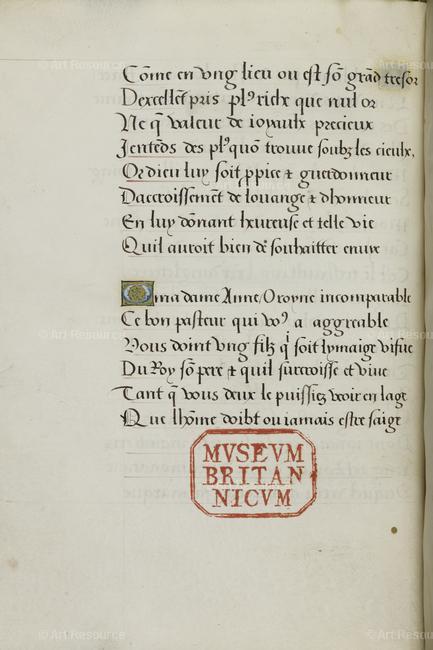 © Art Resource © Art Resource © Art Resource
Cōme en vng lieu ou est sō grād tresor
Dexcellēt pris plꝰ riche que nul or
Ne q̄ valeur de ioyaulx precieux
Jentēds des plꝰ quō trouue soubz les cieulx,
Or dieu luy soit ꝓpice & guerdonneur
Daccroissemēt de louange & dhonneur
En luy dōnant heureuse et telle vie
Quil auroit bien de souhaitter enuie
O ma dame Anne / O royne incomparable
Ce bon pasteur qui voꝰ a aggreable
© Art Resource © Art Resource © Art Resource
Vous doint vng filz qͥ soit lymaige visue
Du Roy sō pere & quil surcroisse et viue
Tant q̄ vous deux le puissiez veoir en lage
Que lhōme doibt ou iamais estre saige
MVSEVM
BRITAN
NICVM
© Art Resource © Art Resource © Art Resource